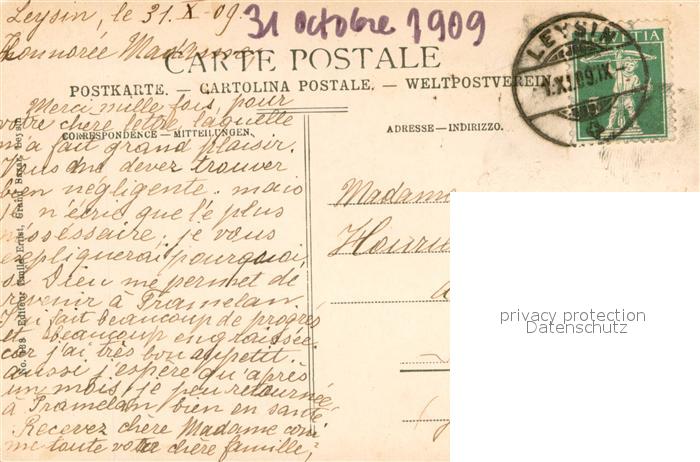 Leysin, le 31. X - 09.
31 octobre 1909
Honnorée Madame
CARTE POSTALE
POSTKARTE. — CARTOLINA POSTALE. — WELTPOSTVEREIN
LEYSIN
1.XI.09.IX
HELVETIA
Merci mille fois, pour
votre chère lettre laquelle
CORRESPONDENCE — MITTEILUNGEN.
ADRESSE — INDIRIZZO.
m'a fait grand plaisir.
Vous me devez trouver
bien négligente. mais
je n'écrie que le plus
néssessaire; je vous
expliquerai pourquoi,
si Dieu me permet de
revenir à Tramelan
J'ai fait beaucoup de progrès
et beaucoup engraissée
car j'ai très bon appetit.
aussi j'espère qu'après
un mois, je peu retournée
à Tramelan bien en santé
Recevez chère Madame comme
toute votre chère famille;
Madame
Houriet
a
No. 738 Editeur Emile Ernst, Grand Bazar, Leysin
privacy protection
Datenschutz